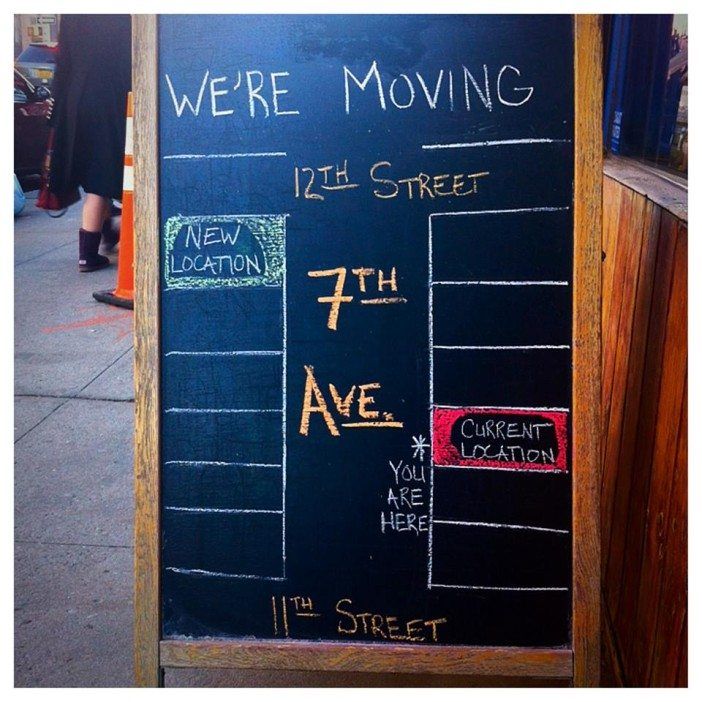 WE'RE MOVING
12TH STREET
NEW
LOCATION
7TH
AVE.
CURRENT
LOCATION
*
YOU
ARE
HERE
11TH STREET